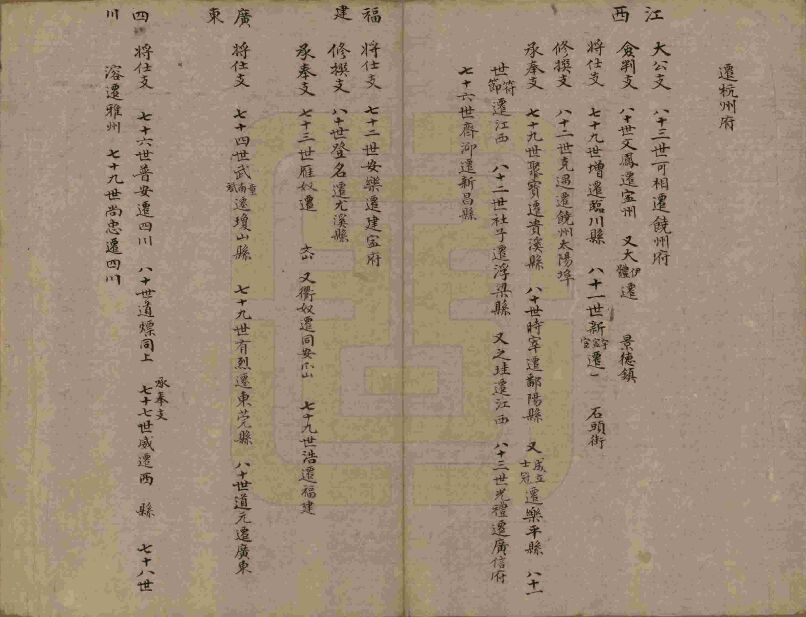 遷杭州府
江西
大公支　八十三世可相遷饒州府
僉判支　八十世文鳳遷宣州　又大伊體遷　景德鎮
將仕支　七十九世增遷臨川縣　八十一世新遷　石頭街
修撰支　八十二世克遇遷饒州太陽埠
承奉支　七十九世聚寶遷貴溪縣　八十世時宰遷鄱陽縣　又成立士冠遷樂平縣　八十一
世符節遷江西　八十二世社子遷浮梁縣　又之珪遷江西　八十三世光禮遷廣信府
七十六世齊沖遷新昌縣
福建
將仕支　七十二世安樂遷建寧府
修撰支　八十世登名遷尤溪縣
承奉支　七十三世雁奴遷　又衢奴遷同安　七十九世浩遷福建
廣東
將仕支　七十四世武重南斌遷瓊山縣　七十九世有烈遷東莞縣　八十世道元遷廣東
四川
將仕支　七十六世普安遷四川　八十世道煙同上　承奉支　七十七世威遷西　縣　七十八世
溶遷雅州　七十九世尚忠遷四川